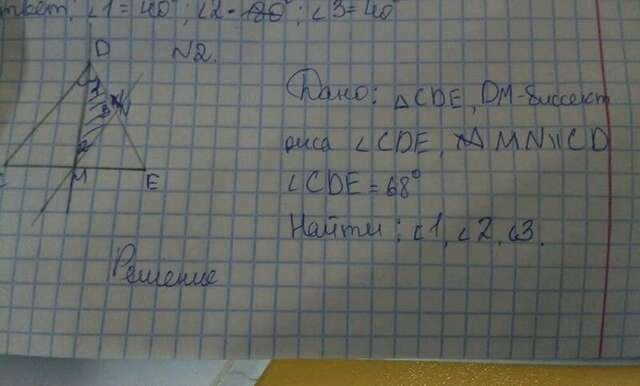 твет: ∠1=40°; ∠2=180°; ∠3=40°
N2.
D
1
3
N
2
C
M
E
Дано: △CDE, DM-биссект
риса ∠CDE, MN॥CD
∠CDE=68°
Найти: ∠1, ∠2, ∠3.
Решение